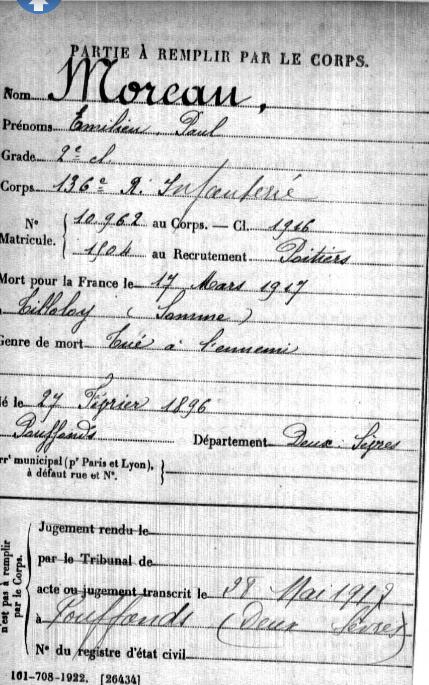 PARTIE À REMPLIR PAR LE CORPS.
Nom Moreau,
Prénoms Emilien Paul
Grade 2e cl
Corps 136e R. Infanterie
N° Matricule. { 10.962 au Corps. — Cl. 1916
1804 au Recrutement Poitiers
Mort pour la France le 17 Mars 1917
Tilloloy (Somme)
Genre de mort Tué à l'ennemi
né le 27 Février 1896
Pouffonds Département Deux-Sèvres
arrt municipal (pr Paris et Lyon), à défaut rue et N°. }
n'est pas à remplir par le Corps.
Jugement rendu le
par le Tribunal de
acte ou jugement transcrit le 28 Mai 1917
à Pouffonds (Deux Sèvres)
N° du registre d'état civil
101-708-1922. [26434]